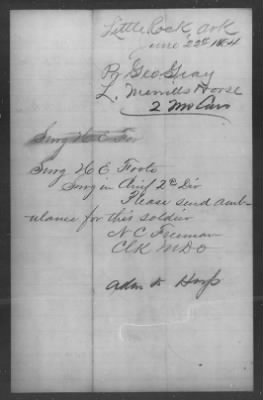 Little Rock, Ark
June 22d 1864
Geo Gray
L. Merrills Horse
2 Mo Cav
Surg H E Foo
Surg H E Foote
Surg in Chief 2d Div
Please send amb-
ulance for this soldier
N C Freeman
Clk M D O